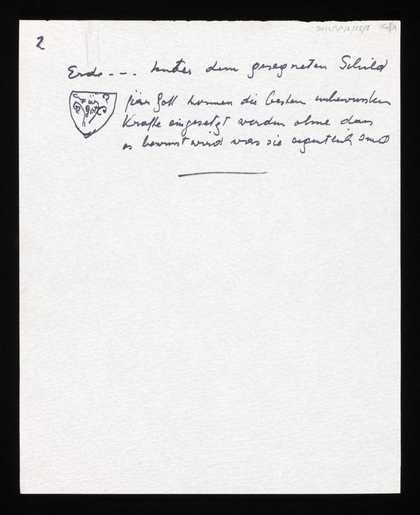 2
Erde --- unter dem gesegneten Schild
für Gott
für Gott können die besten unbewussten
Kräfte eingesetzt werden ohne dass
es bewusst wird was sie eigentlich sind